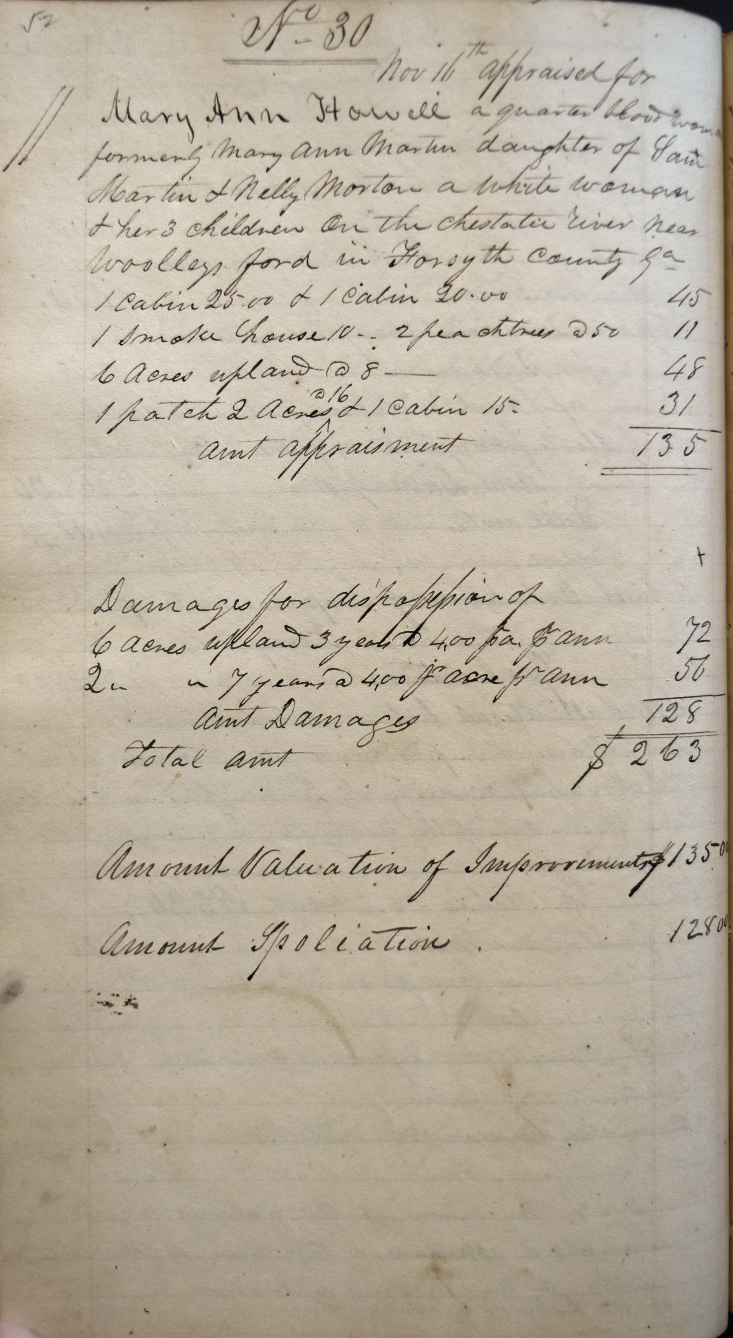 52
No 30
Nov 16th appraised for
Mary Ann Howell a quarter blood woman
formerly Mary Ann Martin daughter of Sam
Martin & Nelly Morton a white woman
& her 3 children On the Chestatie river near
Woolleys ford in Forsyth County Ga
1 Cabin 25.00 & 1 Cabin 20.00 45
1 Smoke house 10 - 2 peachtrees @ 50 11
6 Acres upland @ 8 — 48
1 patch 2 Acres @ 16 & 1 Cabin 15- 31
amt appraisment 135
Damages for dispossession of
6 acres upland 3 years @ 4,00 pa. pr ann 72
2 " " 7 years @ 4,00 pr acre pr ann 56
Amt Damages 128
Total amt $ 263
Amount Valuation of Improvements $135.00
Amount Spoliation . 128 00